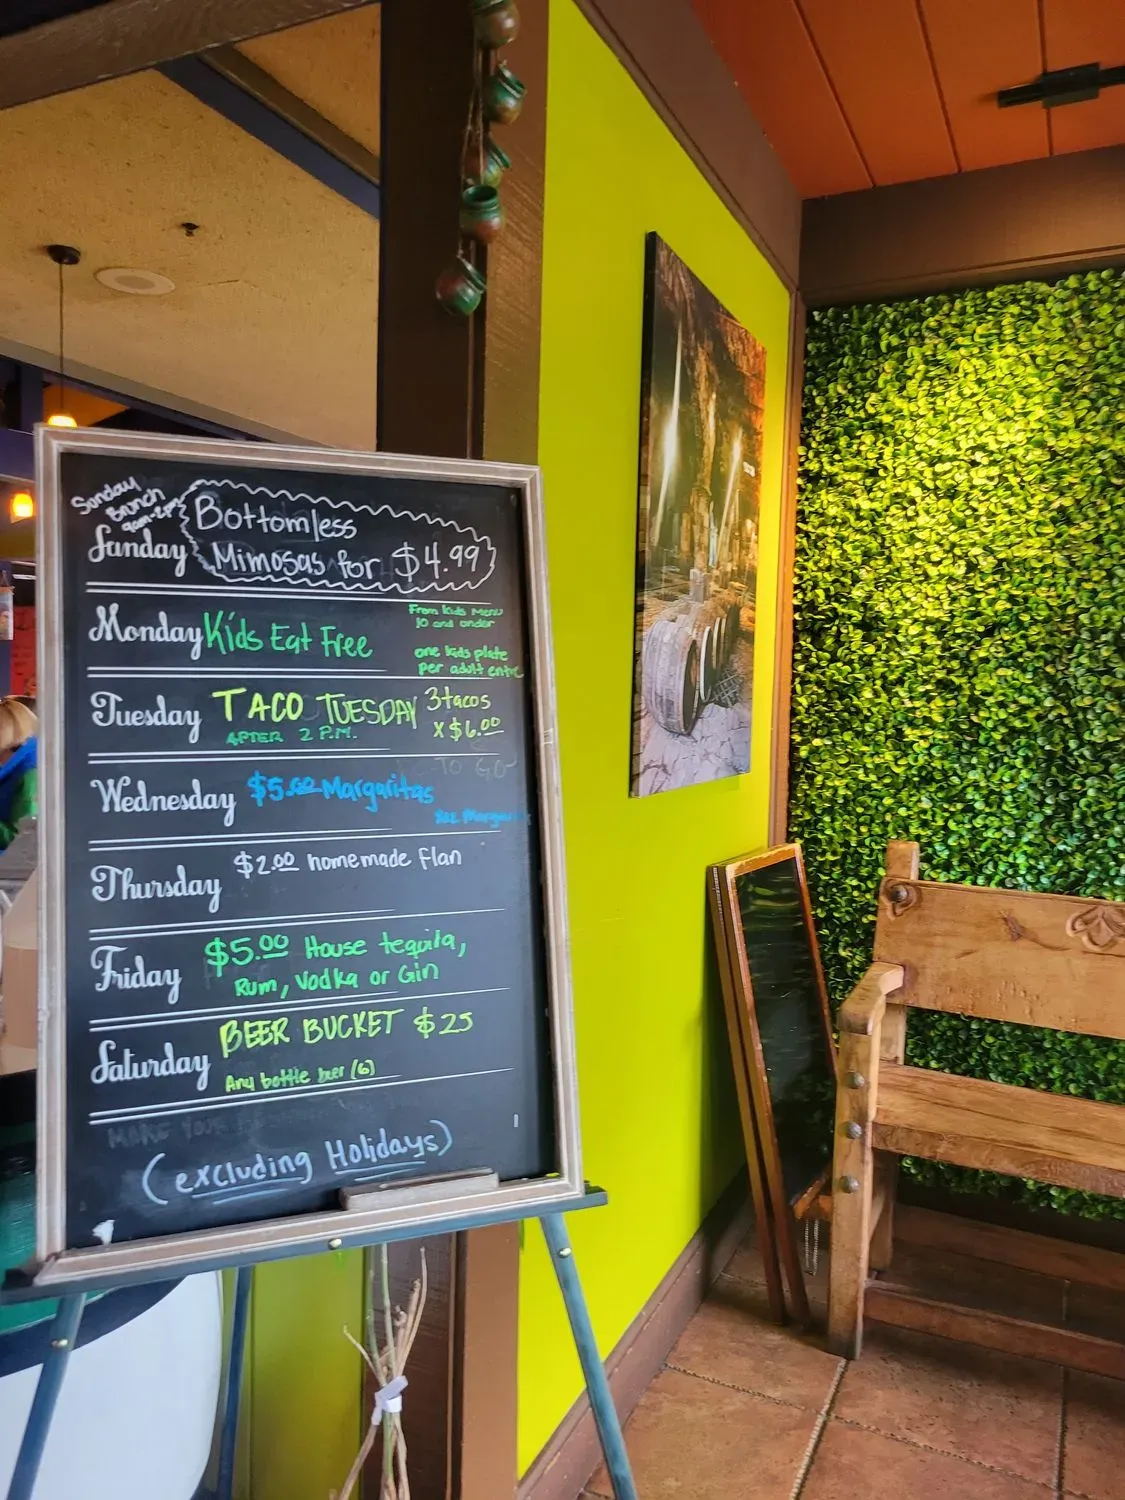 Sunday
Brunch
9am-2pm
Sunday
Bottomless
Mimosas for $4.99
Monday Kids Eat Free
From Kids Menu
10 and under
one kids plate
per adult entre
Tuesday TACO TUESDAY 3 tacos
AFTER 2 P.M. x $6.00
TO GO
Wednesday $5.00 Margaritas
Thursday $2.00 homemade Flan
Friday $5.00 House tequila,
Rum, Vodka or Gin
Saturday BEER BUCKET $25
Any bottle beer (6)
MAKE YOUR
(excluding Holidays)